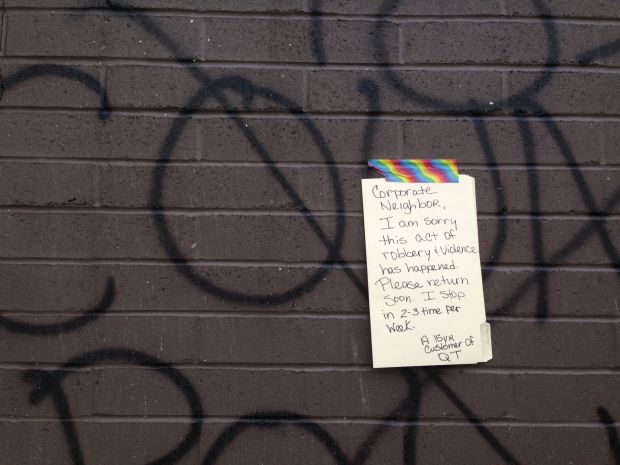 Corporate
Neighbor,
I am sorry
this act of
robbery & violence
has happened.
Please return
soon. I stop
in 2-3 time per
week.
A 15yr
Customer of
QT